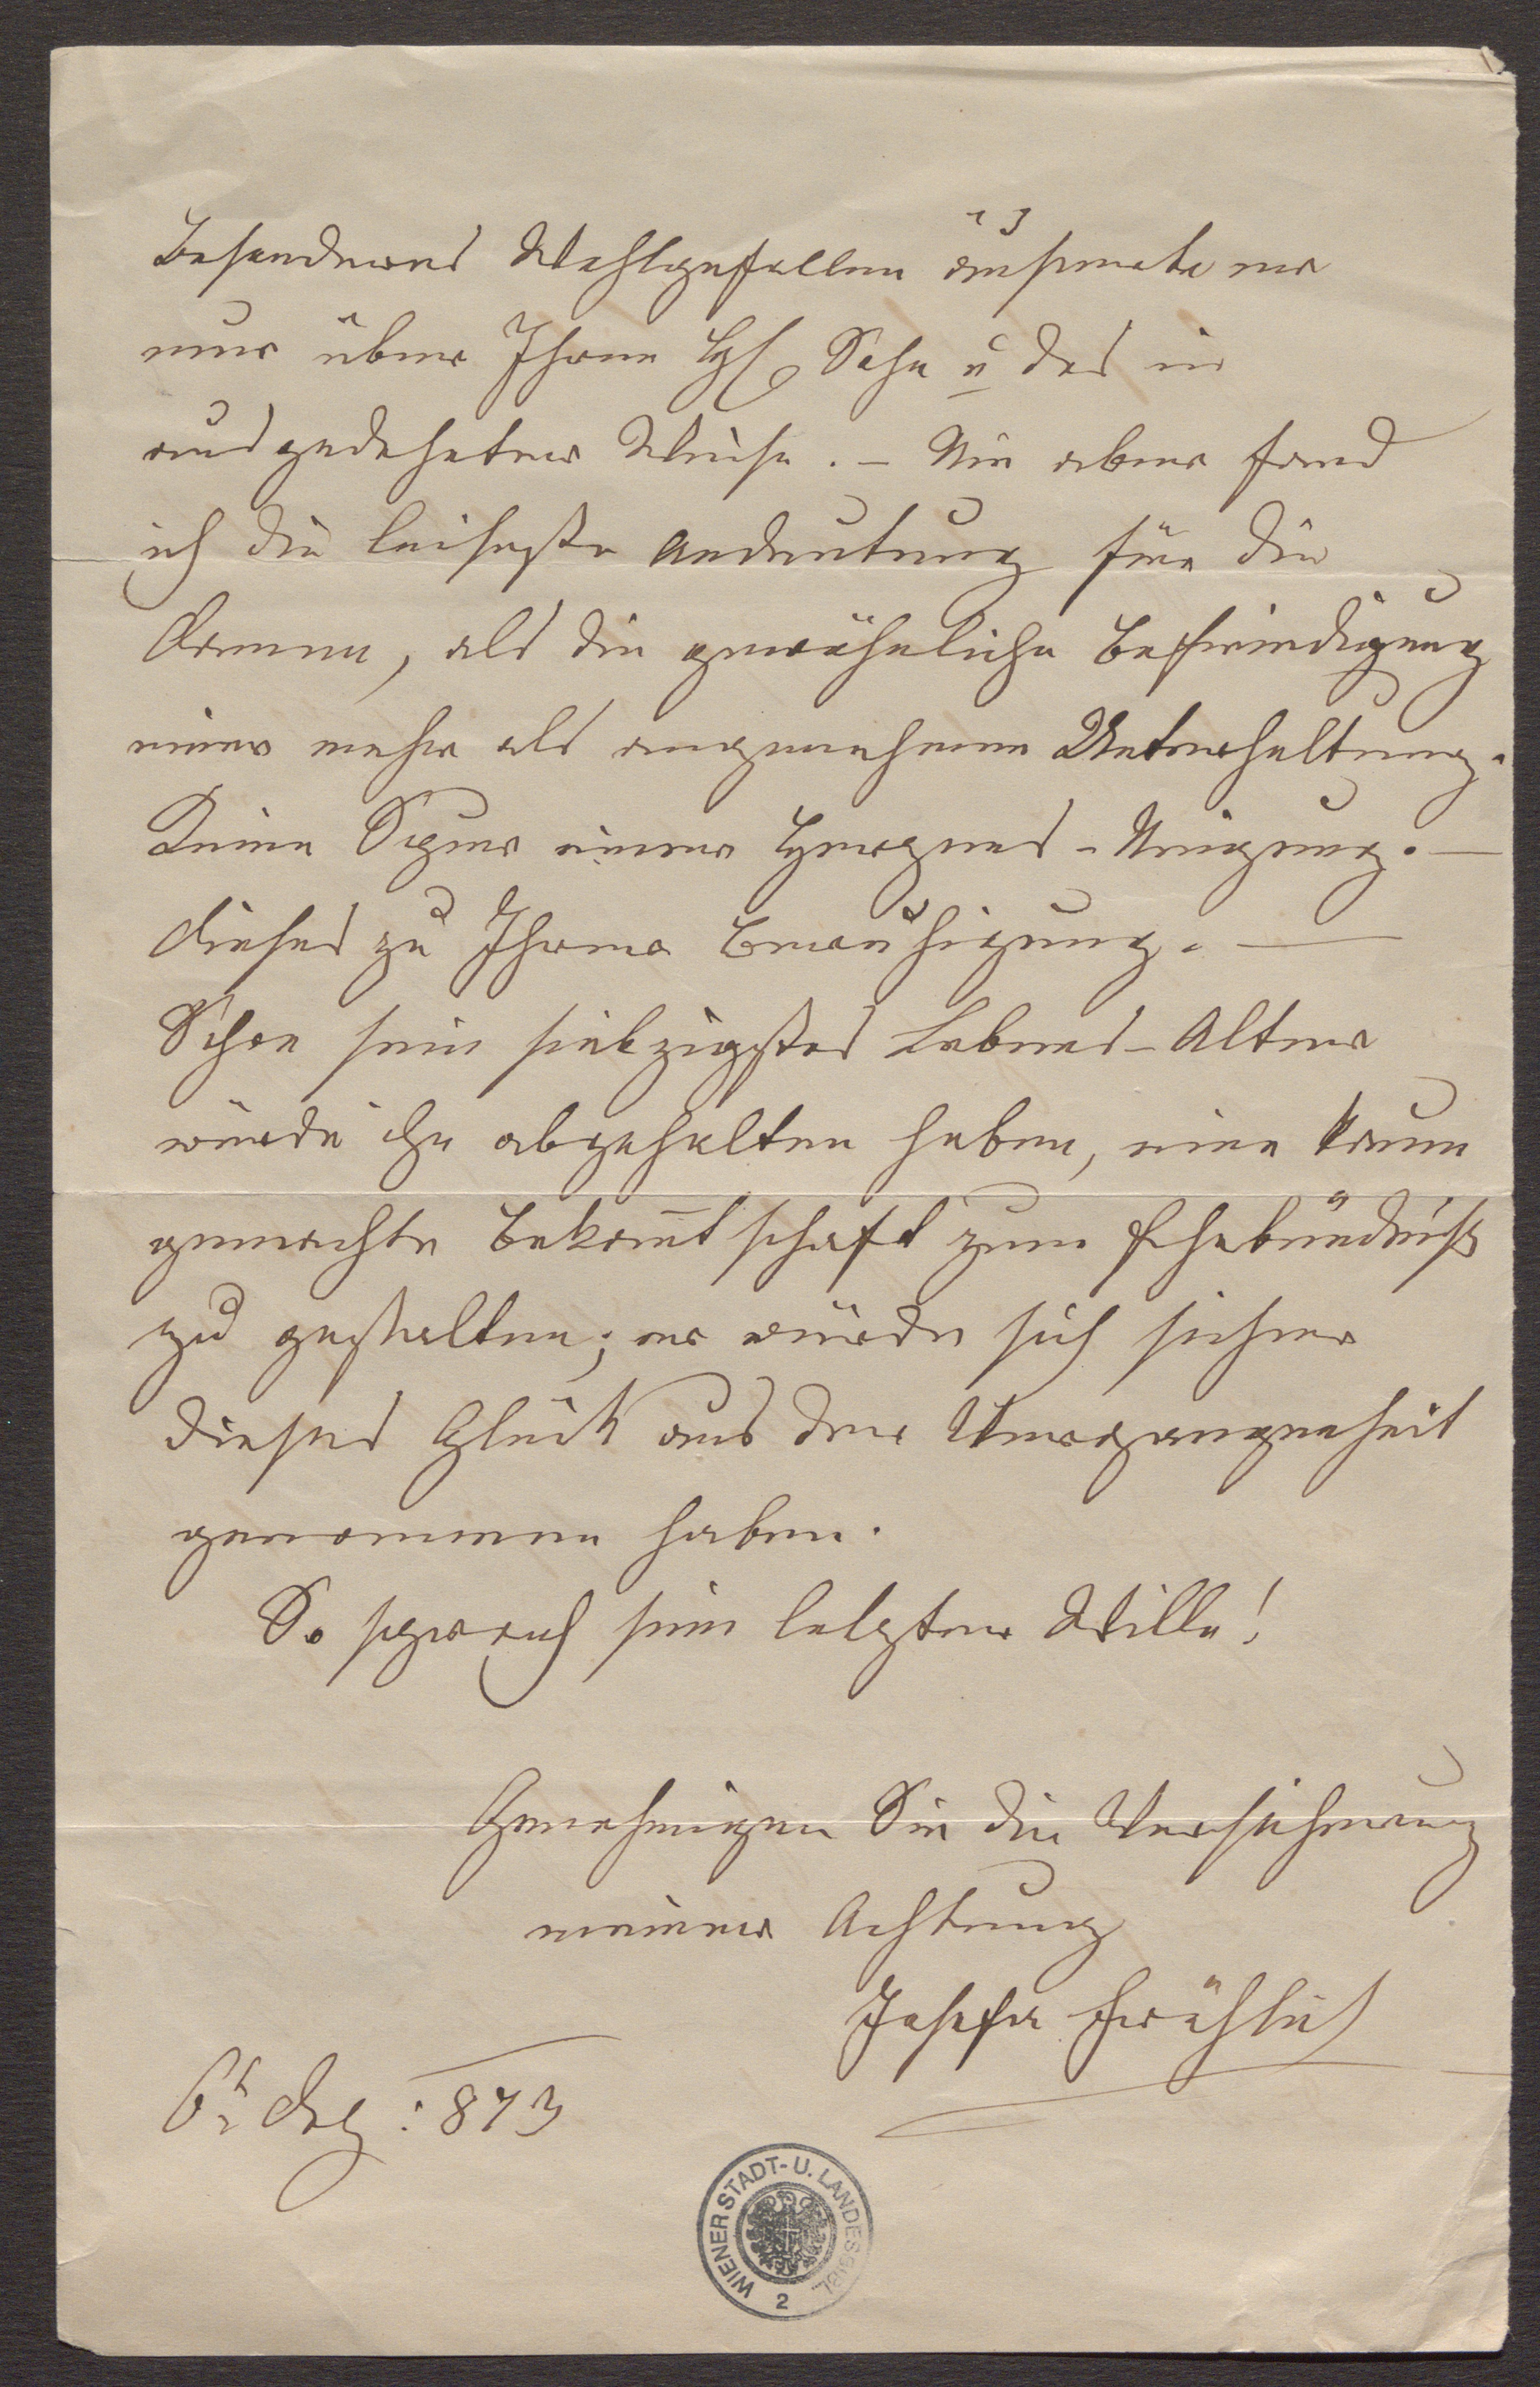 Besonderes Wohlgefallen äußerte er
nur über Ihren H Sohn u das in
ausgedehnter Weise. – Nie aber fand
ich die leiseste Andeutung für die
Damen, als die gewöhnliche Befriedigung
einer mehr als angenehmen Unterhaltung.
Keine Spur einer Herzens-Neigung. –
Dieses zu Ihrer Beruhigung. –
Schon sein siebzigstes Lebens-Alter
würde ihn abgehalten haben, eine kaum
gemachte Bekan̅tschaft zum Ehebündniß
zu gestalten; er würde sich sicher
dieses Glück aus der Vergangenheit
genommen haben.
So sprach sein letzter Wille!
Genehmigen Sie die Versicherung
meiner Achtung
Josefa Fröhlich
6t Dez: 873
WIENER STADT- U. LANDESBIBL.
2